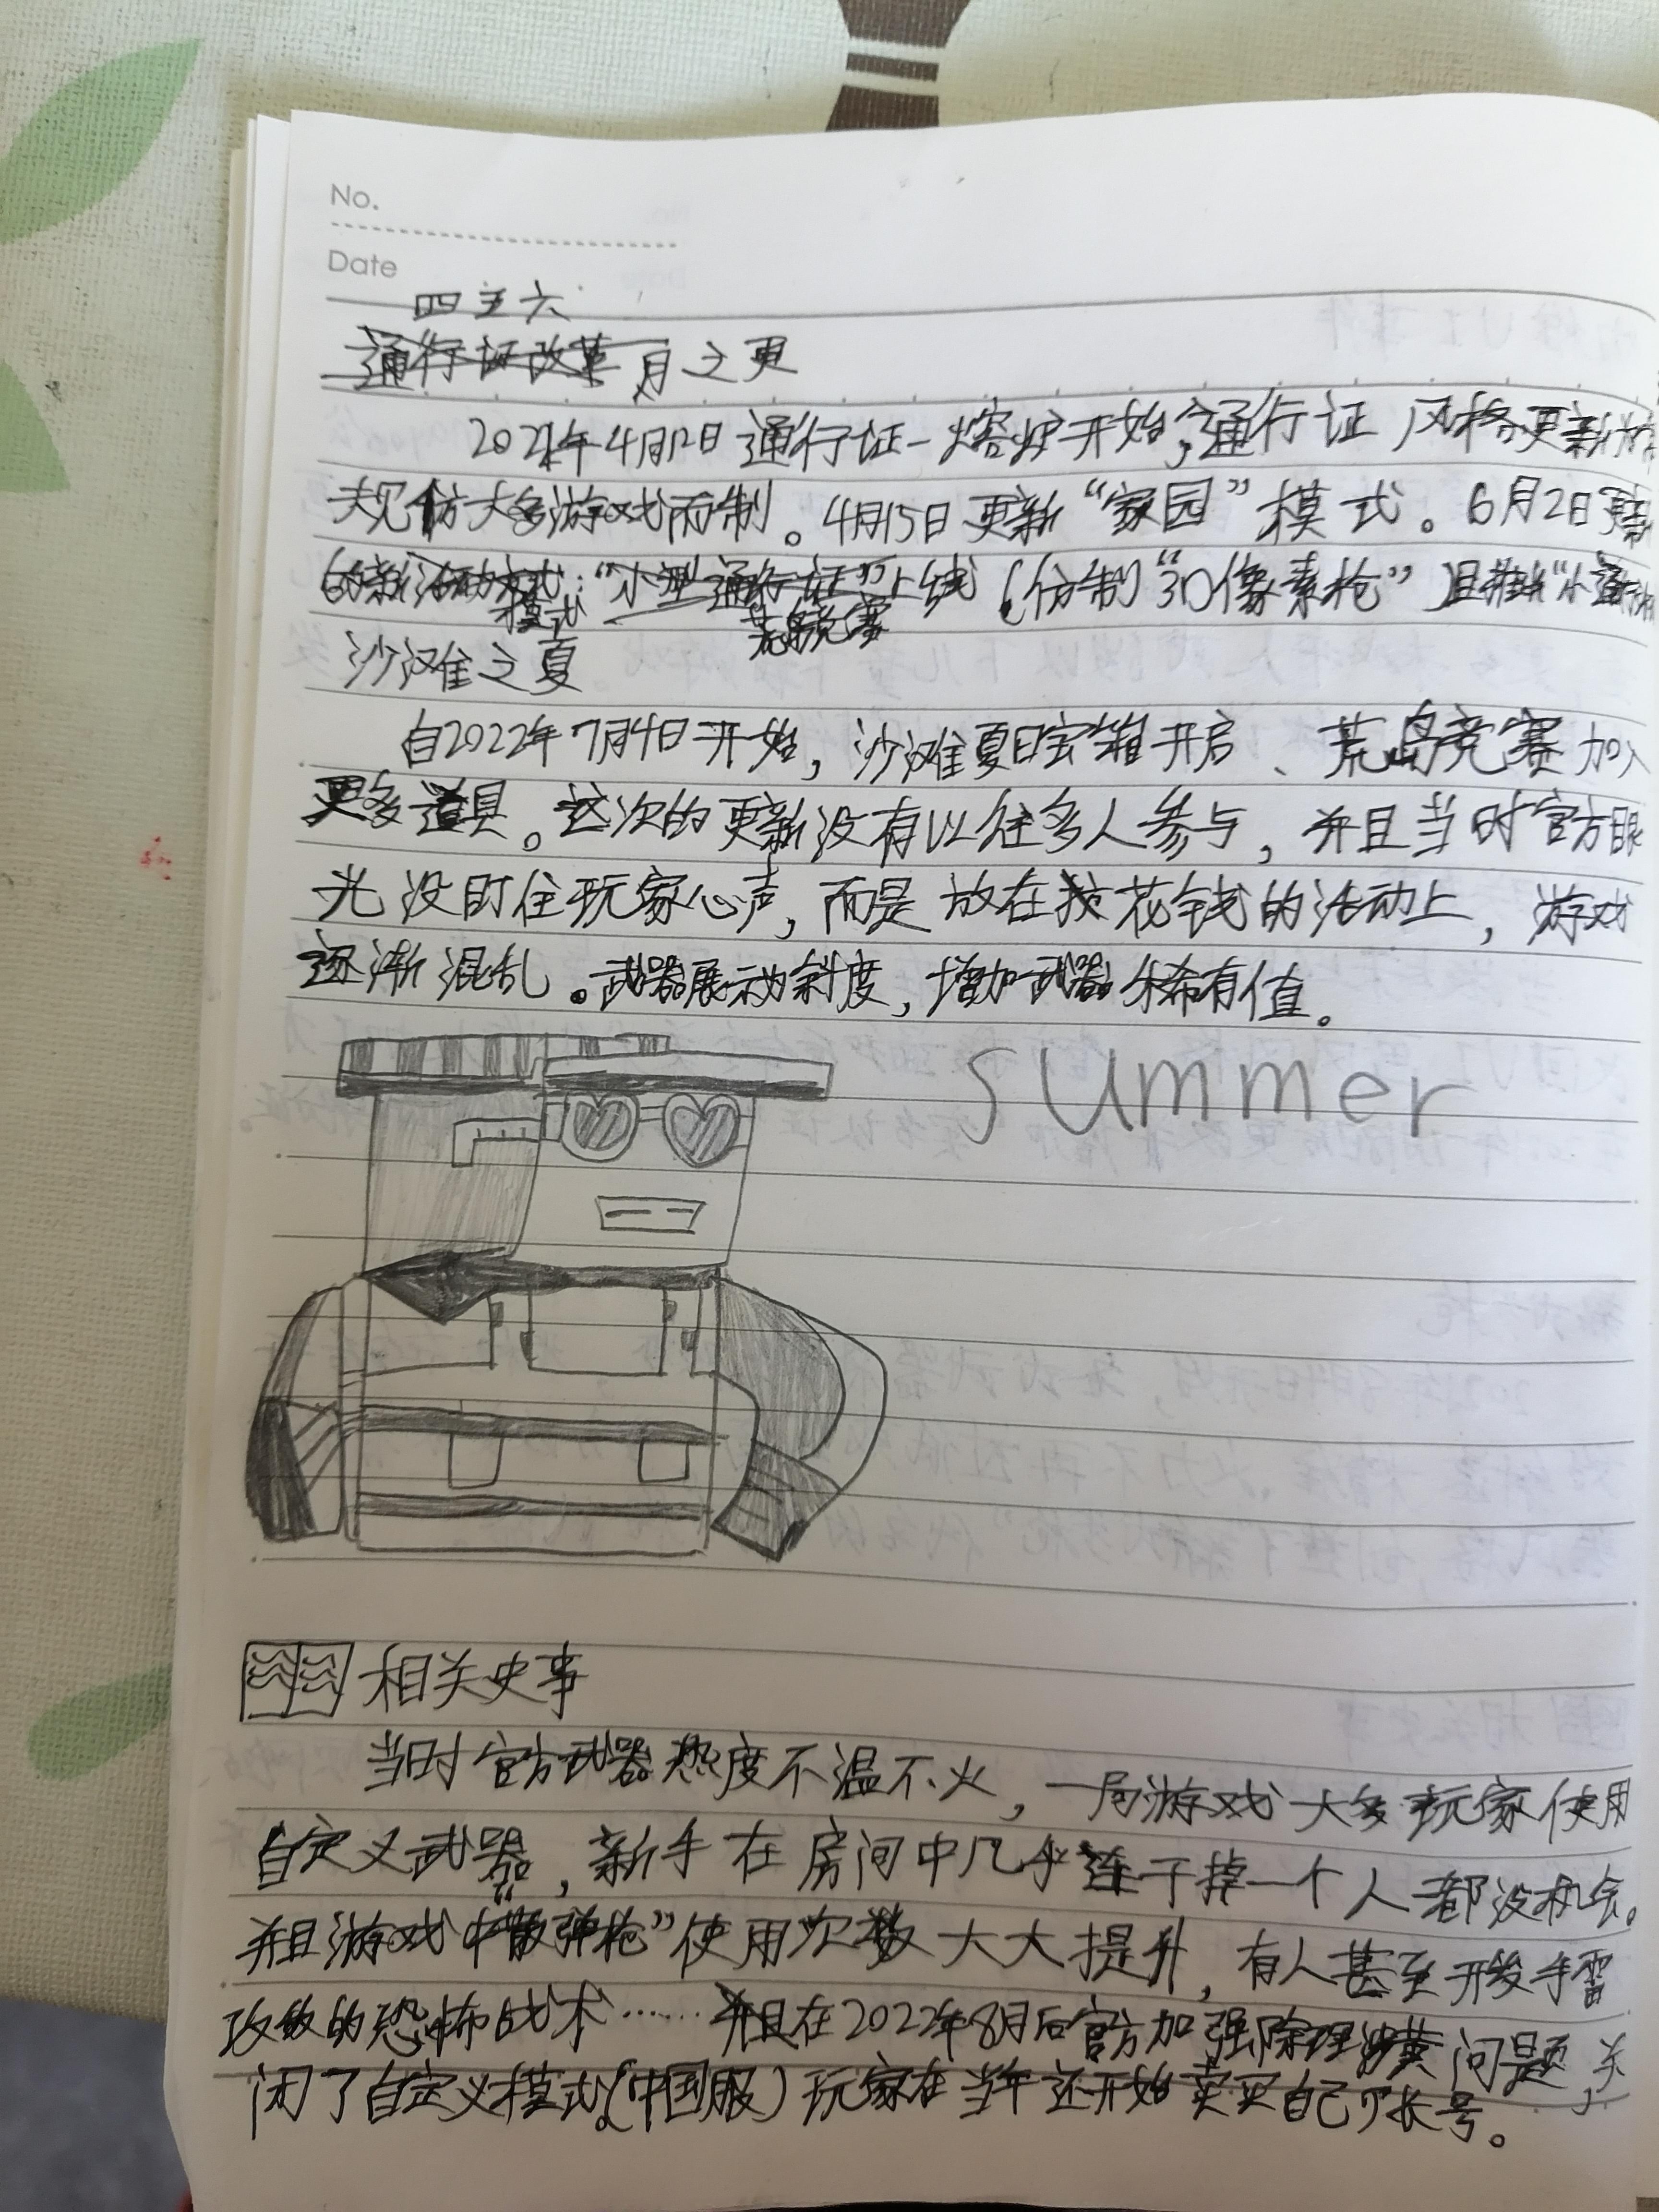 No.
Date
四至六
通行证改革月之更
2022年4月12日通行证-熔炉开始,通行证风格更新为
大规仿大多游戏而制。4月15日更新“家园”模式。6月2日更新
的新活动方式:“小型通行证”上线(仿制“3D像素枪”)且推出“小通行证
模式 荒岛竞赛
沙滩之夏
自2022年7月4日开始,沙滩夏日宝箱开启、荒岛竞赛加入
更多道具。这次的更新没有以往多人参与,并且当时官方眼
光没盯住玩家心声,而是放在找花钱的活动上,游戏
逐渐混乱。武器展示动斜度,增加武器稀有值。
summer
相关史事
当时官方武器热度不温不火,一局游戏大多玩家使用
自定义武器,新手在房间中几乎连干掉一个人都没机会。
并且游戏中“散弹枪”使用次数大大提升,有人甚至开发手雷
攻的恐怖战术……并且在2022年8月后官方加强除理涉黄问题,关
闭了自定义模式(中国服)。玩家在当年还开始卖买自己的账号。